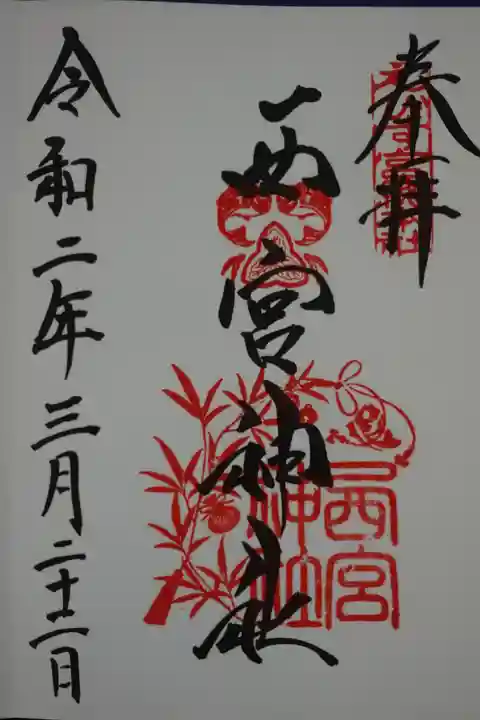 奉拝
西宮神社
西宮
神社
令和二年三月二十二日